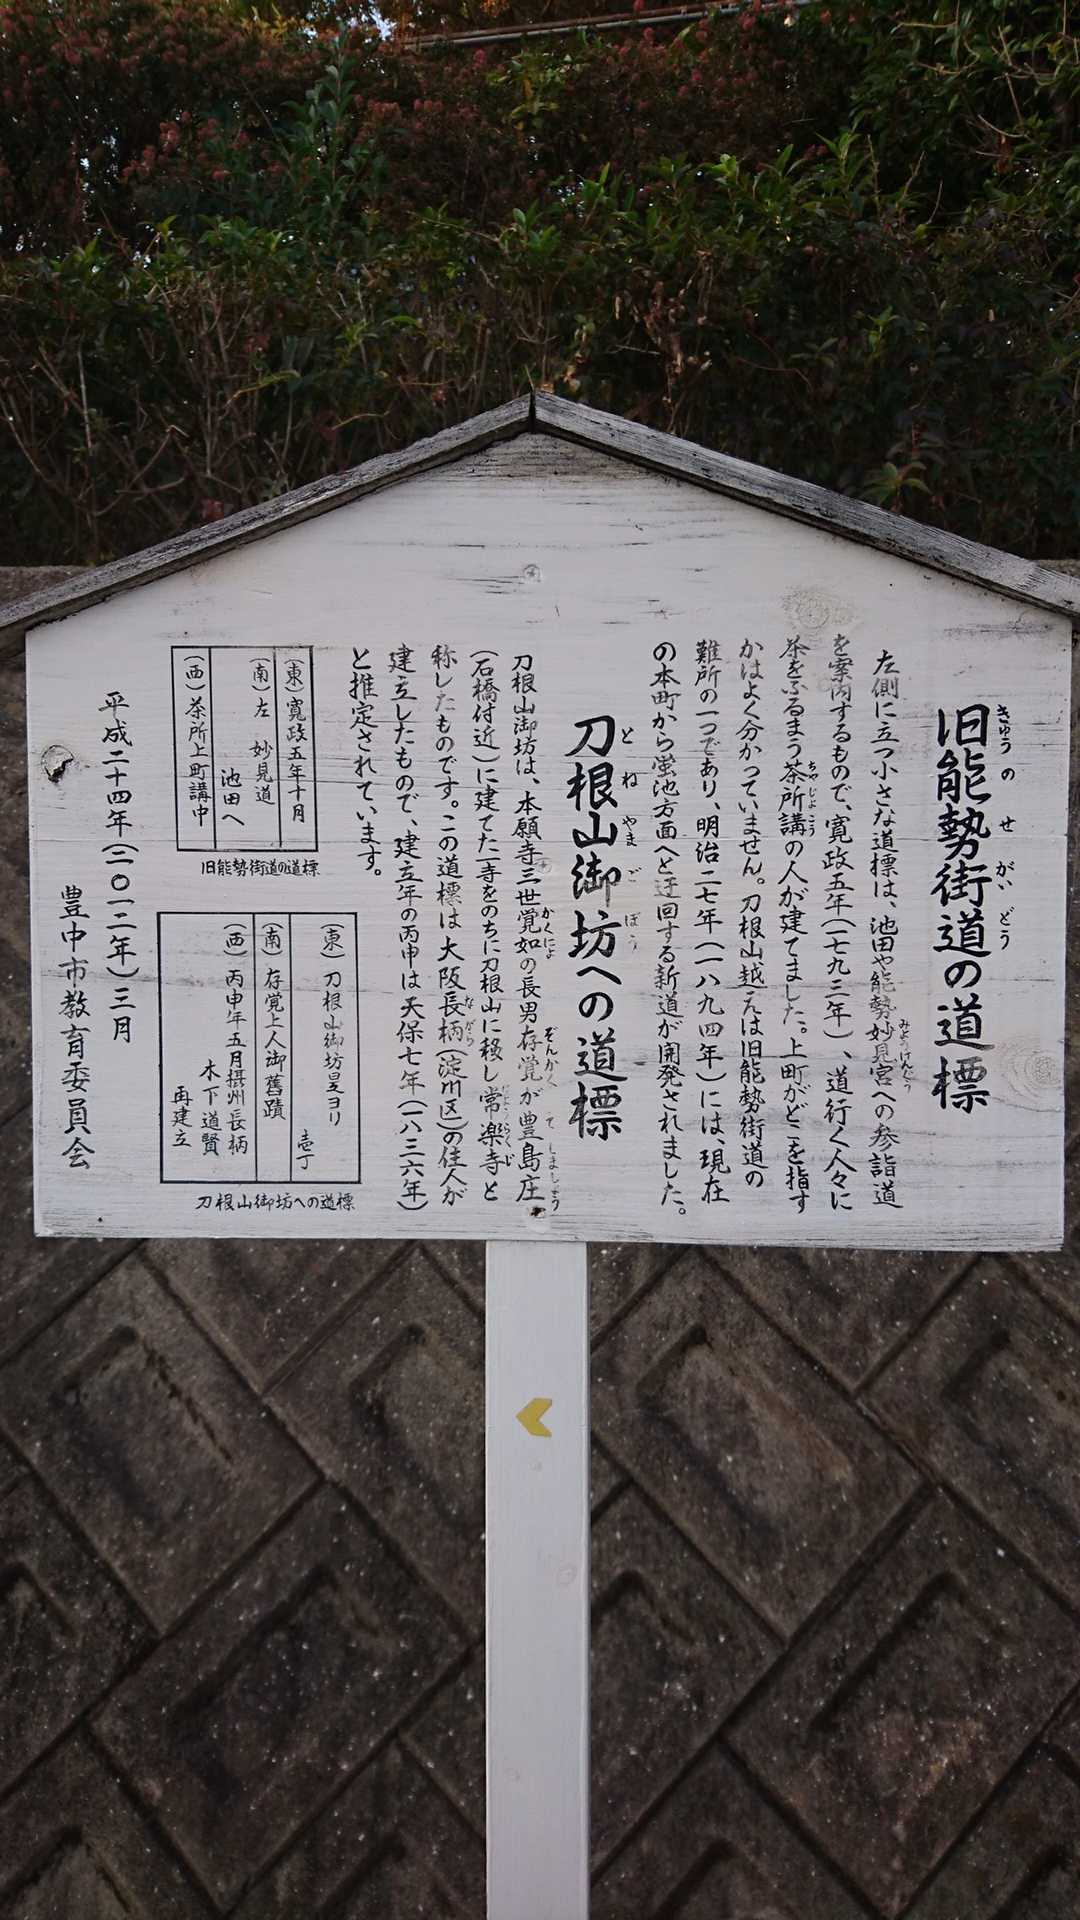 旧能勢街道の道標
きゅうのせがいどう
左側に立つ小さな道標は、池田や能勢妙見宮への参詣道
みょうけんぐう
を案内するもので、寛政五年(一七九三年)、道行く人々に
茶をふるまう茶所講の人が建てました。上町がどこを指す
ちゃじょこう
かはよく分かっていません。刀根山越えは旧能勢街道の
難所の一つであり、明治二七年(一八九四年)には、現在
の本町から蛍池方面へと迂回する新道が開発されました。
刀根山御坊への道標
とねやまごぼう
刀根山御坊は、本願寺三世覚如の長男存覚が豊島庄
かくにょ ぞんかく てしましょう
(石橋付近)に建てた一寺をのちに刀根山に移し常楽寺と
じょうらくじ
称したものです。この道標は大阪長柄(淀川区)の住人が
ながら
建立したもので、建立年の丙申は天保七年(一八三六年)
と推定されています。
(東)寛政五年十月
(南)左 妙見道
池田へ
(西)茶所上町講中
旧能勢街道の道標
(東)刀根山御坊是ヨリ
壱丁
(南)存覚上人御舊蹟
(西)丙申年五月摂州長柄
木下道賢
再建立
刀根山御坊への道標
平成二十四年(二〇一二年)三月
豊中市教育委員会